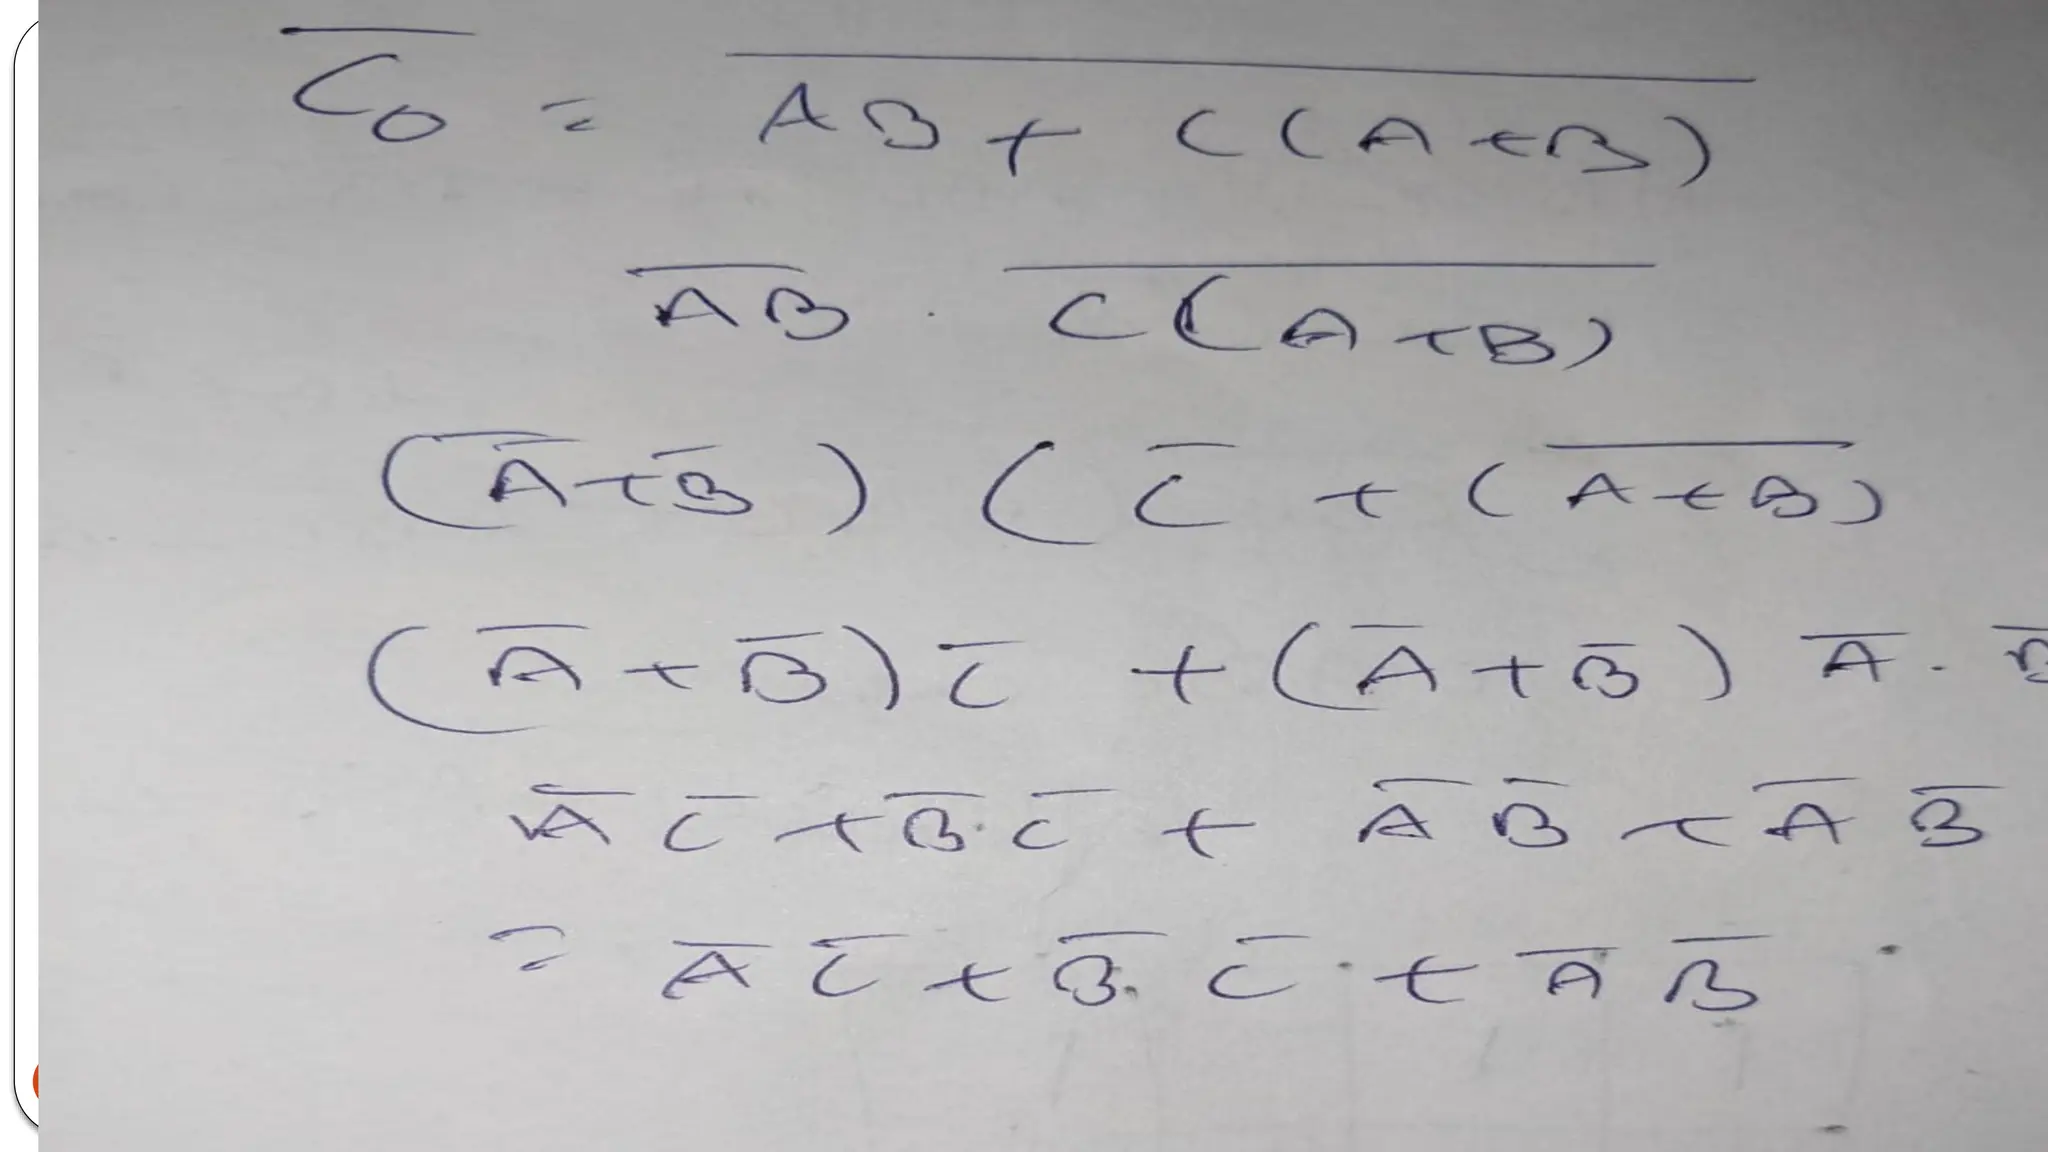 C̅₀̅ = \overline{AB + C(A+B)}
\overline{AB} . \overline{C(A+B)}
(A̅+B̅) (C̅ + (\overline{A+B})
(A̅+B̅)C̅ + (A̅+B̅) A̅.B̅
A̅C̅+B̅.C̅+ A̅B̅+A̅B̅
= A̅C̅+B̅.C̅+A̅B̅.